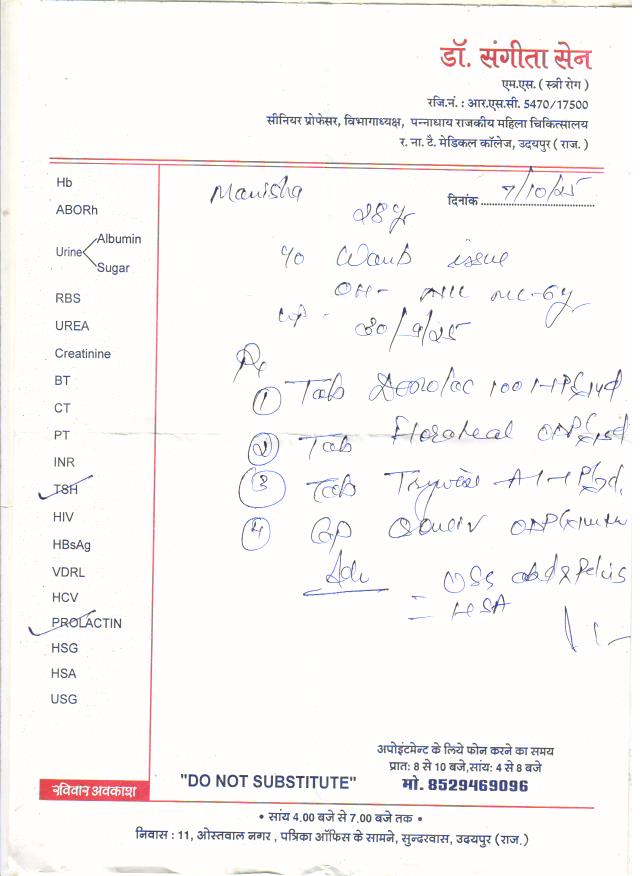 डॉ. संगीता सेन
एम.एस. ( स्त्री रोग )
रजि.नं. : आर.एस.सी. 5470/17500
सीनियर प्रोफेसर, विभागाध्यक्ष, पन्नाधाय राजकीय महिला चिकित्सालय
र. ना. टै. मेडिकल कॉलेज, उदयपुर ( राज. )
दिनांक 7/10/25
Manisha
28 yr
Wants issue
OH-
30/9/25
Rx
① Tab 100
② Tab
③ Tab
④
Adv
USG abd & Pelvis
= HSA
Hb
ABORh
Urine Albumin
Sugar
RBS
UREA
Creatinine
BT
CT
PT
INR
TSH
HIV
HBsAg
VDRL
HCV
PROLACTIN
HSG
HSA
USG
रविवार अवकाश
"DO NOT SUBSTITUTE"
अपोइंटमेन्ट के लिये फोन करने का समय
प्रात: 8 से 10 बजे,सांय: 4 से 8 बजे
मो. 8529469096
• सांय 4.00 बजे से 7.00 बजे तक •
निवास : 11, ओस्तवाल नगर , पत्रिका ऑफिस के सामने, सुन्दरवास, उदयपुर (राज.)